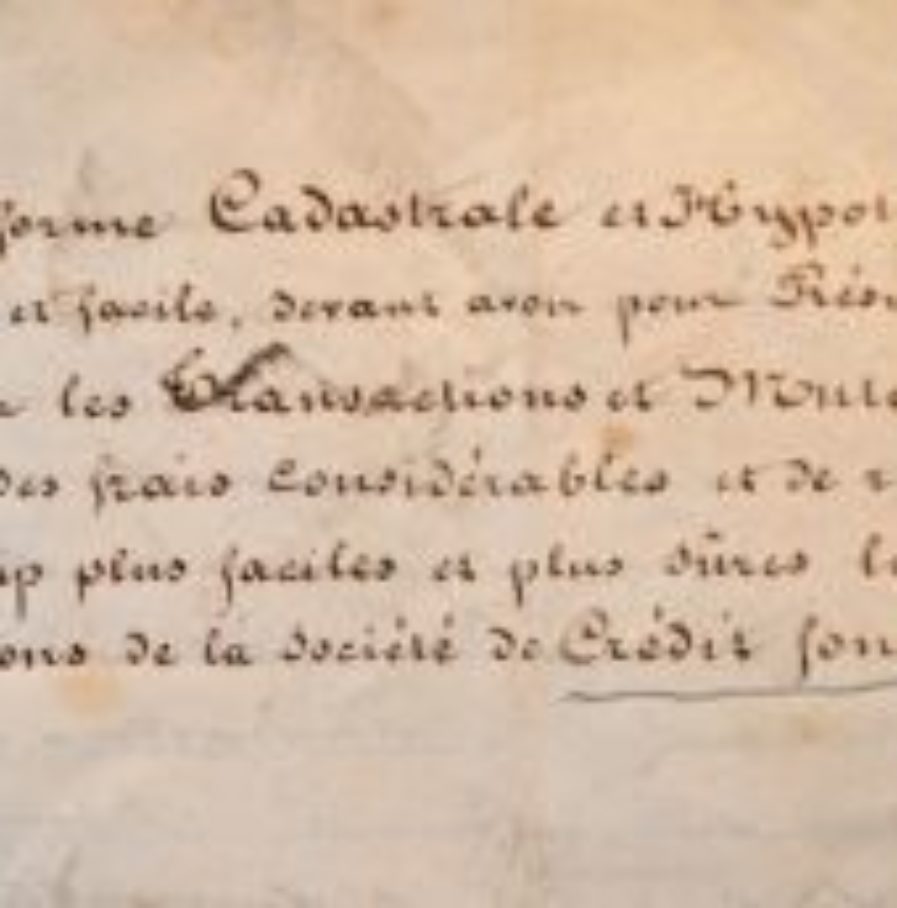 forme Cadastrale et Hypot
et facile, devant avoir pour Résu
les Transactions et Muta
des frais considérables et de r
up plus faciles et plus sûres le
ons de la société de Crédit fon